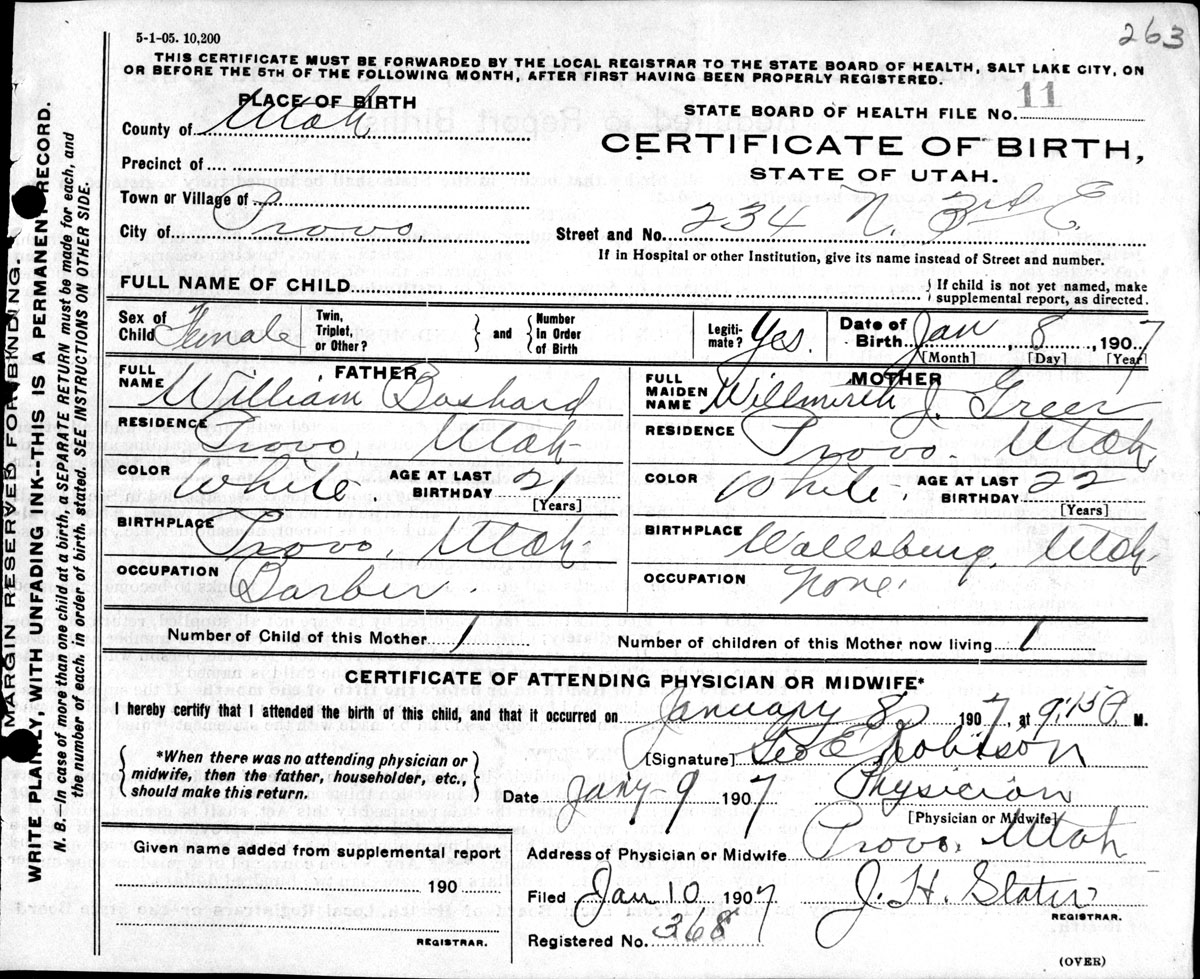 263
5-1-05. 10,200
THIS CERTIFICATE MUST BE FORWARDED BY THE LOCAL REGISTRAR TO THE STATE BOARD OF HEALTH, SALT LAKE CITY, ON
OR BEFORE THE 5TH OF THE FOLLOWING MONTH, AFTER FIRST HAVING BEEN PROPERLY REGISTERED.
MARGIN RESERVED FOR BINDING.
WRITE PLAINLY, WITH UNFADING INK--THIS IS A PERMANENT RECORD.
N. B.—In case of more than one child at a birth, a SEPARATE RETURN must be made for each, and
the number of each, in order of birth, stated. SEE INSTRUCTIONS ON OTHER SIDE.
PLACE OF BIRTH
County of Utah
Precinct of
Town or Village of
City of Provo
STATE BOARD OF HEALTH FILE No. 11
CERTIFICATE OF BIRTH,
STATE OF UTAH.
Street and No. 234 N. 3rd E
If in Hospital or other Institution, give its name instead of Street and number.
FULL NAME OF CHILD
{ If child is not yet named, make
supplemental report, as directed.
Sex of Child Female
Twin, Triplet, or Other?
} and { Number In Order of Birth
Legiti-mate? Yes.
Date of Birth Jan 8, 1907
[Month] [Day] [Year]
FATHER
FULL NAME William Boshard
RESIDENCE Provo, Utah
COLOR White AGE AT LAST BIRTHDAY 21
[Years]
BIRTHPLACE Provo, Utah
OCCUPATION Barber.
MOTHER
FULL MAIDEN NAME Willmirth J. Greer
RESIDENCE Provo. Utah
COLOR White. AGE AT LAST BIRTHDAY 22
[Years]
BIRTHPLACE Wallsburg, Utah
OCCUPATION None.
Number of Child of this Mother 1 Number of children of this Mother now living 1
CERTIFICATE OF ATTENDING PHYSICIAN OR MIDWIFE*
I hereby certify that I attended the birth of this child, and that it occurred on January 8, 1907, at 9:15 P. M.
{ *When there was no attending physician or
midwife, then the father, householder, etc.,
should make this return. }
[Signature] Geo E Robison
Date Jany-9 1907 Physician
[Physician or Midwife]
Given name added from supplemental report
190
REGISTRAR.
Address of Physician or Midwife Provo, Utah
Filed Jan 10 1907 J. H. Slater
REGISTRAR.
Registered No. 368
(OVER)